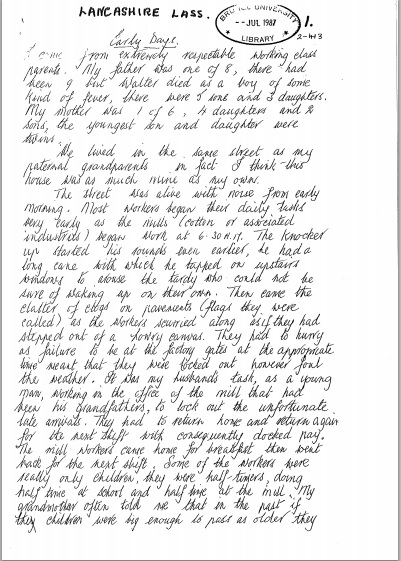 LANCASHIRE LASS.
BRUNEL UNIVERSITY
-- JUL 1987
LIBRARY
1.
2-413
Early Days.
I come from extremely respectable working class
parents. My father was one of 8, there had
been 9 but Walter died as a boy of some
kind of fever, there were 5 sons and 3 daughters.
My mother was 1 of 6, 4 daughters and 2
sons, the youngest son and daughter were
twins.
We lived in the same street as my
paternal grandparents in fact I think this
house was as much mine as my own.
The street was alive with noise from early
morning. Most workers began their daily tasks
very early as the mills (cotton or associated
industries) began work at 6.30 A.M. The knocker
up started his sounds even earlier, he had a
long cane with which he tapped on upstairs
windows to arouse the tardy who could not be
sure of waking up on their own. Then came the
clatter of clogs on pavements (flags they were
called) as the workers scurried along as if they had
stepped out of a Lowry canvas. They had to hurry
as failure to be at the factory gates at the appropriate
time meant that they were locked out however foul
the weather. It was my husbands task, as a young
man, working in the office of the mill that had
been his grandfathers, to lock out the unfortunate
late arrivals. They had to return home and return again
for the next shift with consequently docked pay.
The mill workers came home for breakfast then went
back for the next shift. Some of the workers were
really only children, they were half-timers, doing
half time at school and half time at the mill. My
grandmother often told me that in the past if
they children were big enough to pass as older they